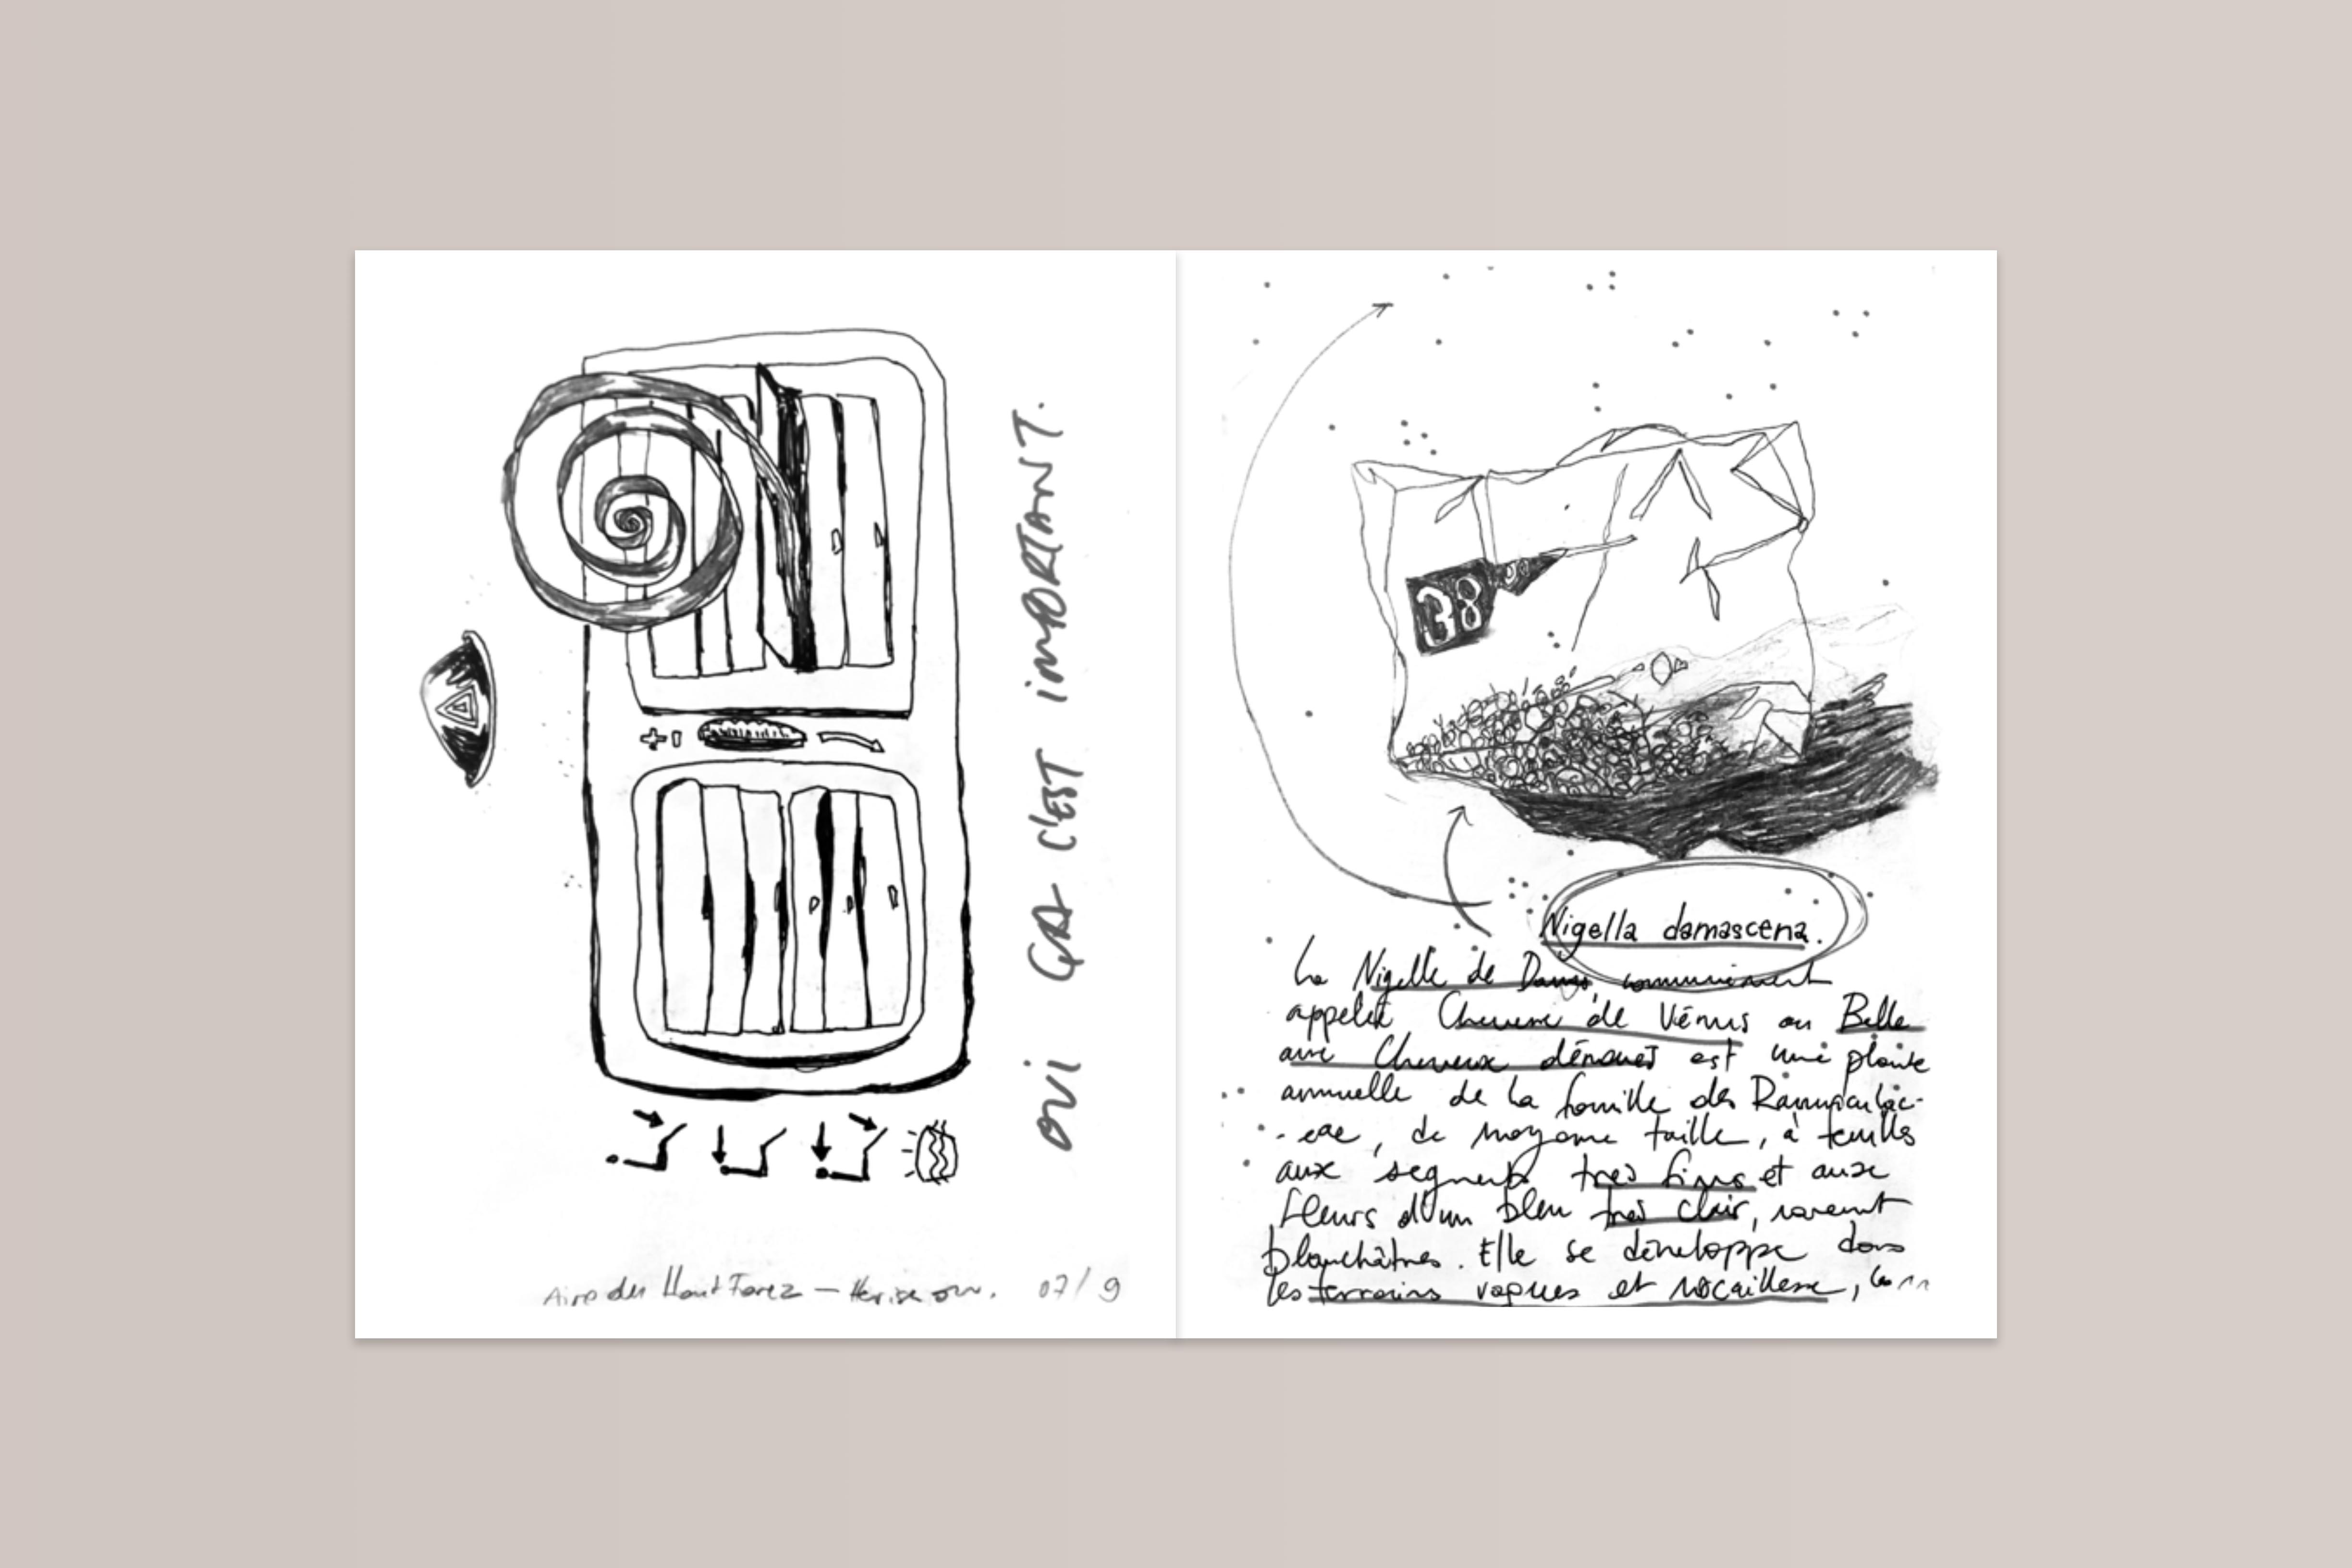 OUI ÇA C'EST IMPORTANT.
Aire du Haut Forez — Hérisson. 07/9
38
Nigella damascena.
La Nigelle de Damas, communément
appelée Cheveux de Vénus ou Belle
aux Cheveux dénoués est une plante
annuelle de la famille des Ranunculac-
- eae, de moyenne taille, à feuilles
aux segments très fins et aux
fleurs d'un bleu très clair, rarement
blanchâtres. Elle se développe dans
les terrains vagues et rocailleux, les